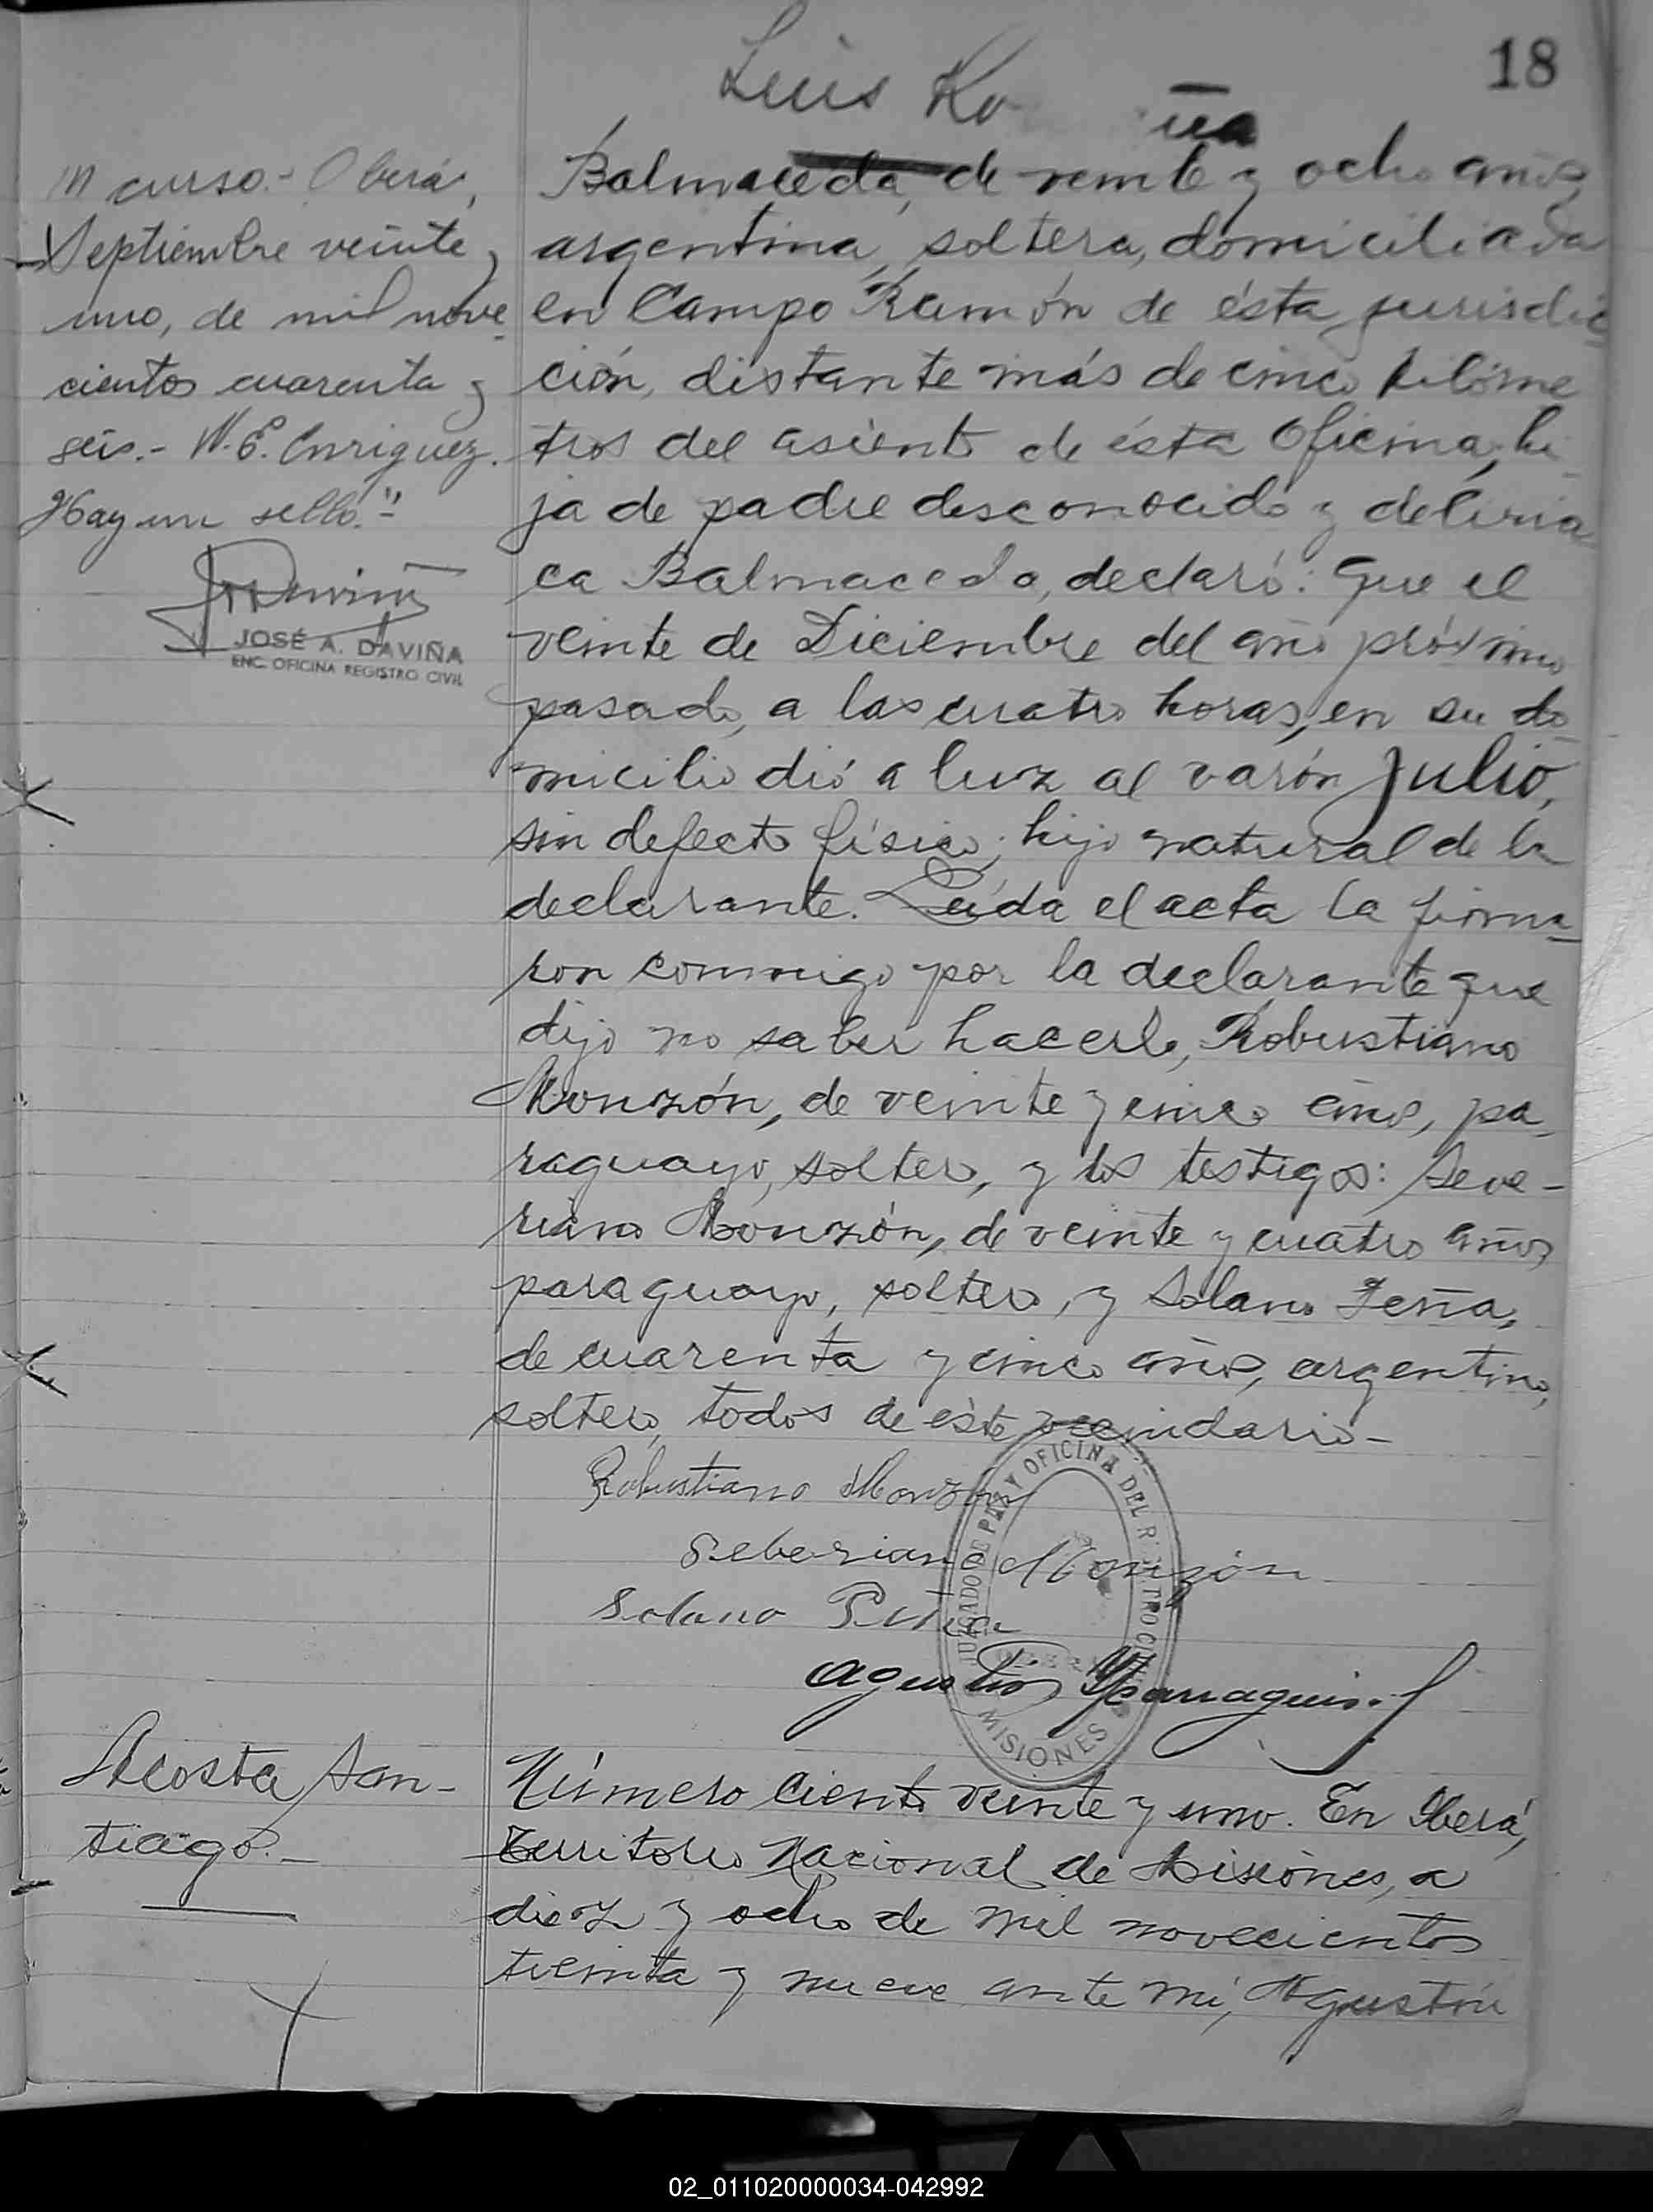 18
Luis Ro
ña
m curso.- Oberá,
Septiembre veinte y
uno, de mil nove-
cientos cuarenta y
seis.- W. E. Enriquez.
Hay un sello."-
JOSÉ A. DAVIÑA
ENC. OFICINA REGISTRO CIVIL
Balmaceda, de veinte y ocho años,
argentina, soltera, domiciliada
en Campo Ramón de ésta jurisdic-
ción, distante más de cinco kilóme
tros del asiento de ésta Oficina, hi-
ja de padre desconocido y de Ciria-
ca Balmaceda, declaró: Que el
veinte de Diciembre del año próximo
pasado, a las cuatro horas, en su do-
micilio dió a luz al varón Julio,
sin defecto físico; hijo natural de la
declarante. Leída el acta la firma-
ron conmigo por la declarante que
dijo no saber hacerlo, Robustiano
Monzón, de veinte y cinco años, pa-
raguayo, soltero, y los testigos: Seve-
riano Monzón, de veinte y cuatro años
paraguayo, soltero, y Solano Peña,
de cuarenta y cinco años, argentino,
soltero, todos de éste vecindario-
Robustiano Monzón
Seberiano Monzón
Solano Peña
Agustín
JUZGADO DE PAZ Y OFICINA DEL REGISTRO CIVIL
MISIONES
Acosta San-
tiago.-
Número Ciento veinte y uno. En Oberá,
Territorio Nacional de Misiones, a
diez y ocho de mil novecientos
treinta y nueve ante mí, Agustín
02_011020000034-042992